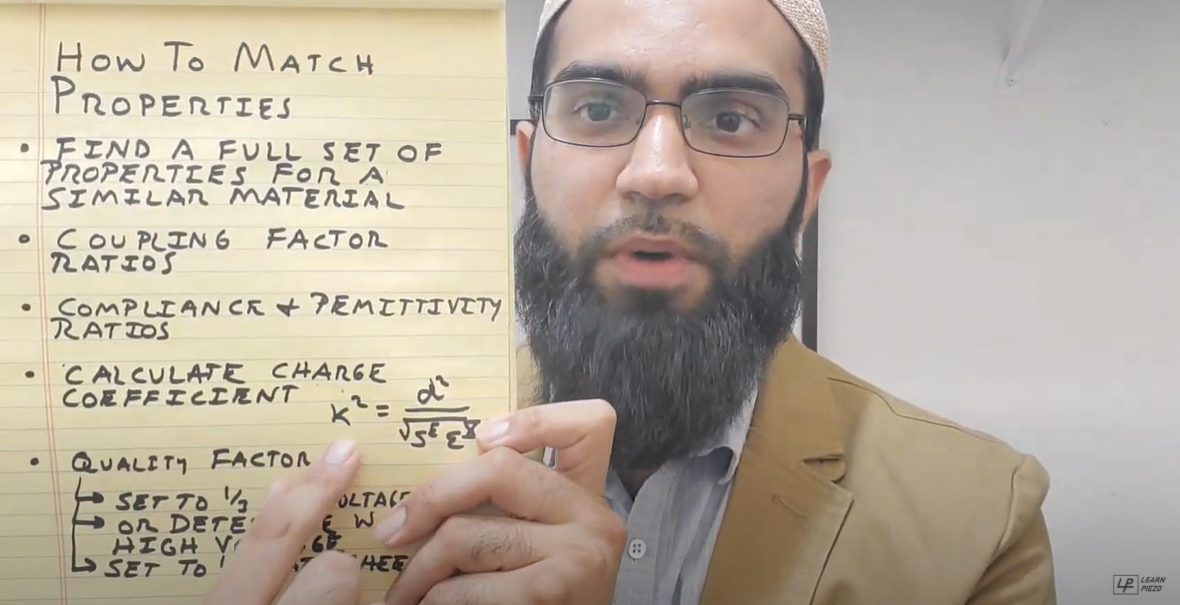 HOW TO MATCH
PROPERTIES
• FIND A FULL SET OF
PROPERTIES FOR A
SIMILAR MATERIAL
• COUPLING FACTOR
RATIOS
• COMPLIANCE + PEMITTIVITY
RATIOS
• CALCULATE CHARGE
COEFFICIENT K² = d² / √S^E ε^X
• QUALITY FACTOR
→ SET TO 1/3
→ OR
HIGH
→ SET TO
LP LEARN
PIEZO